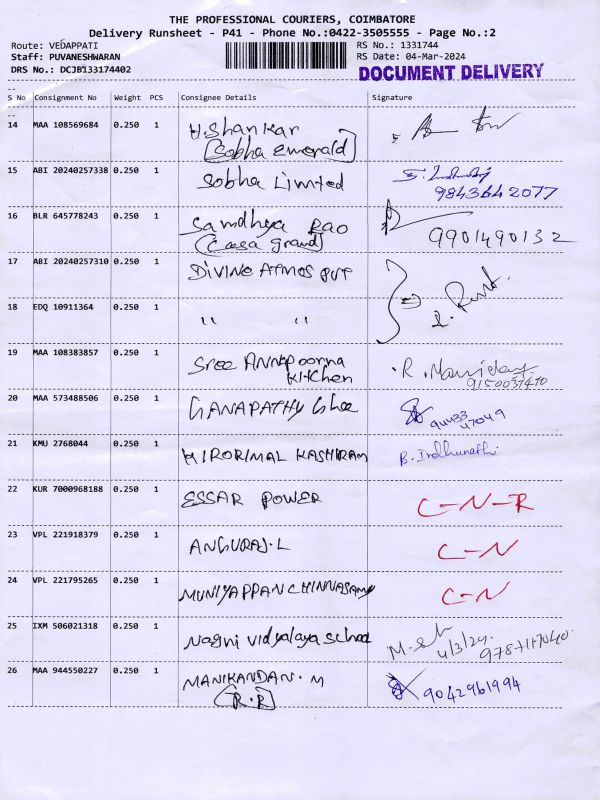 THE PROFESSIONAL COURIERS, COIMBATORE
Delivery Runsheet - P41 - Phone No.:0422-3505555 - Page No.:2
Route: VEDAPPATI RS No.: 1331744
Staff: PUVANESHWARAN RS Date: 04-Mar-2024
DRS No.: DCJB133174402 DOCUMENT DELIVERY
S No Consignment No Weight PCS Consignee Details Signature
14 MAA 108569684 0.250 1 H.Shankar
(Sobha Emerald)
15 ABI 20240257338 0.250 1 Sobha Limted
9843642077
16 BLR 645778243 0.250 1 Samdhya Rao
(Casa grand) 9901490132
17 ABI 20240257310 0.250 1 DIVINE ATMOS PVT
18 EDQ 10911364 0.250 1 " "
19 MAA 108383857 0.250 1 Sree Annapoorna
Kitchen
20 MAA 573488506 0.250 1 GANAPATHY Ghee 94433
47049
21 KMU 2768044 0.250 1 KASHIRAM
22 KUR 7000968188 0.250 1 ESSAR POWER C-N-R
23 VPL 221918379 0.250 1 ANGURAJ.L C-N
24 VPL 221795265 0.250 1 MUNIYAPPAN CHINNASAMY C-N
25 IXM 506021318 0.250 1 Nagni Vidyalaya School 4/3/24
26 MAA 944550227 0.250 1 MANIKANDAN.M 9042961994
(R.R)